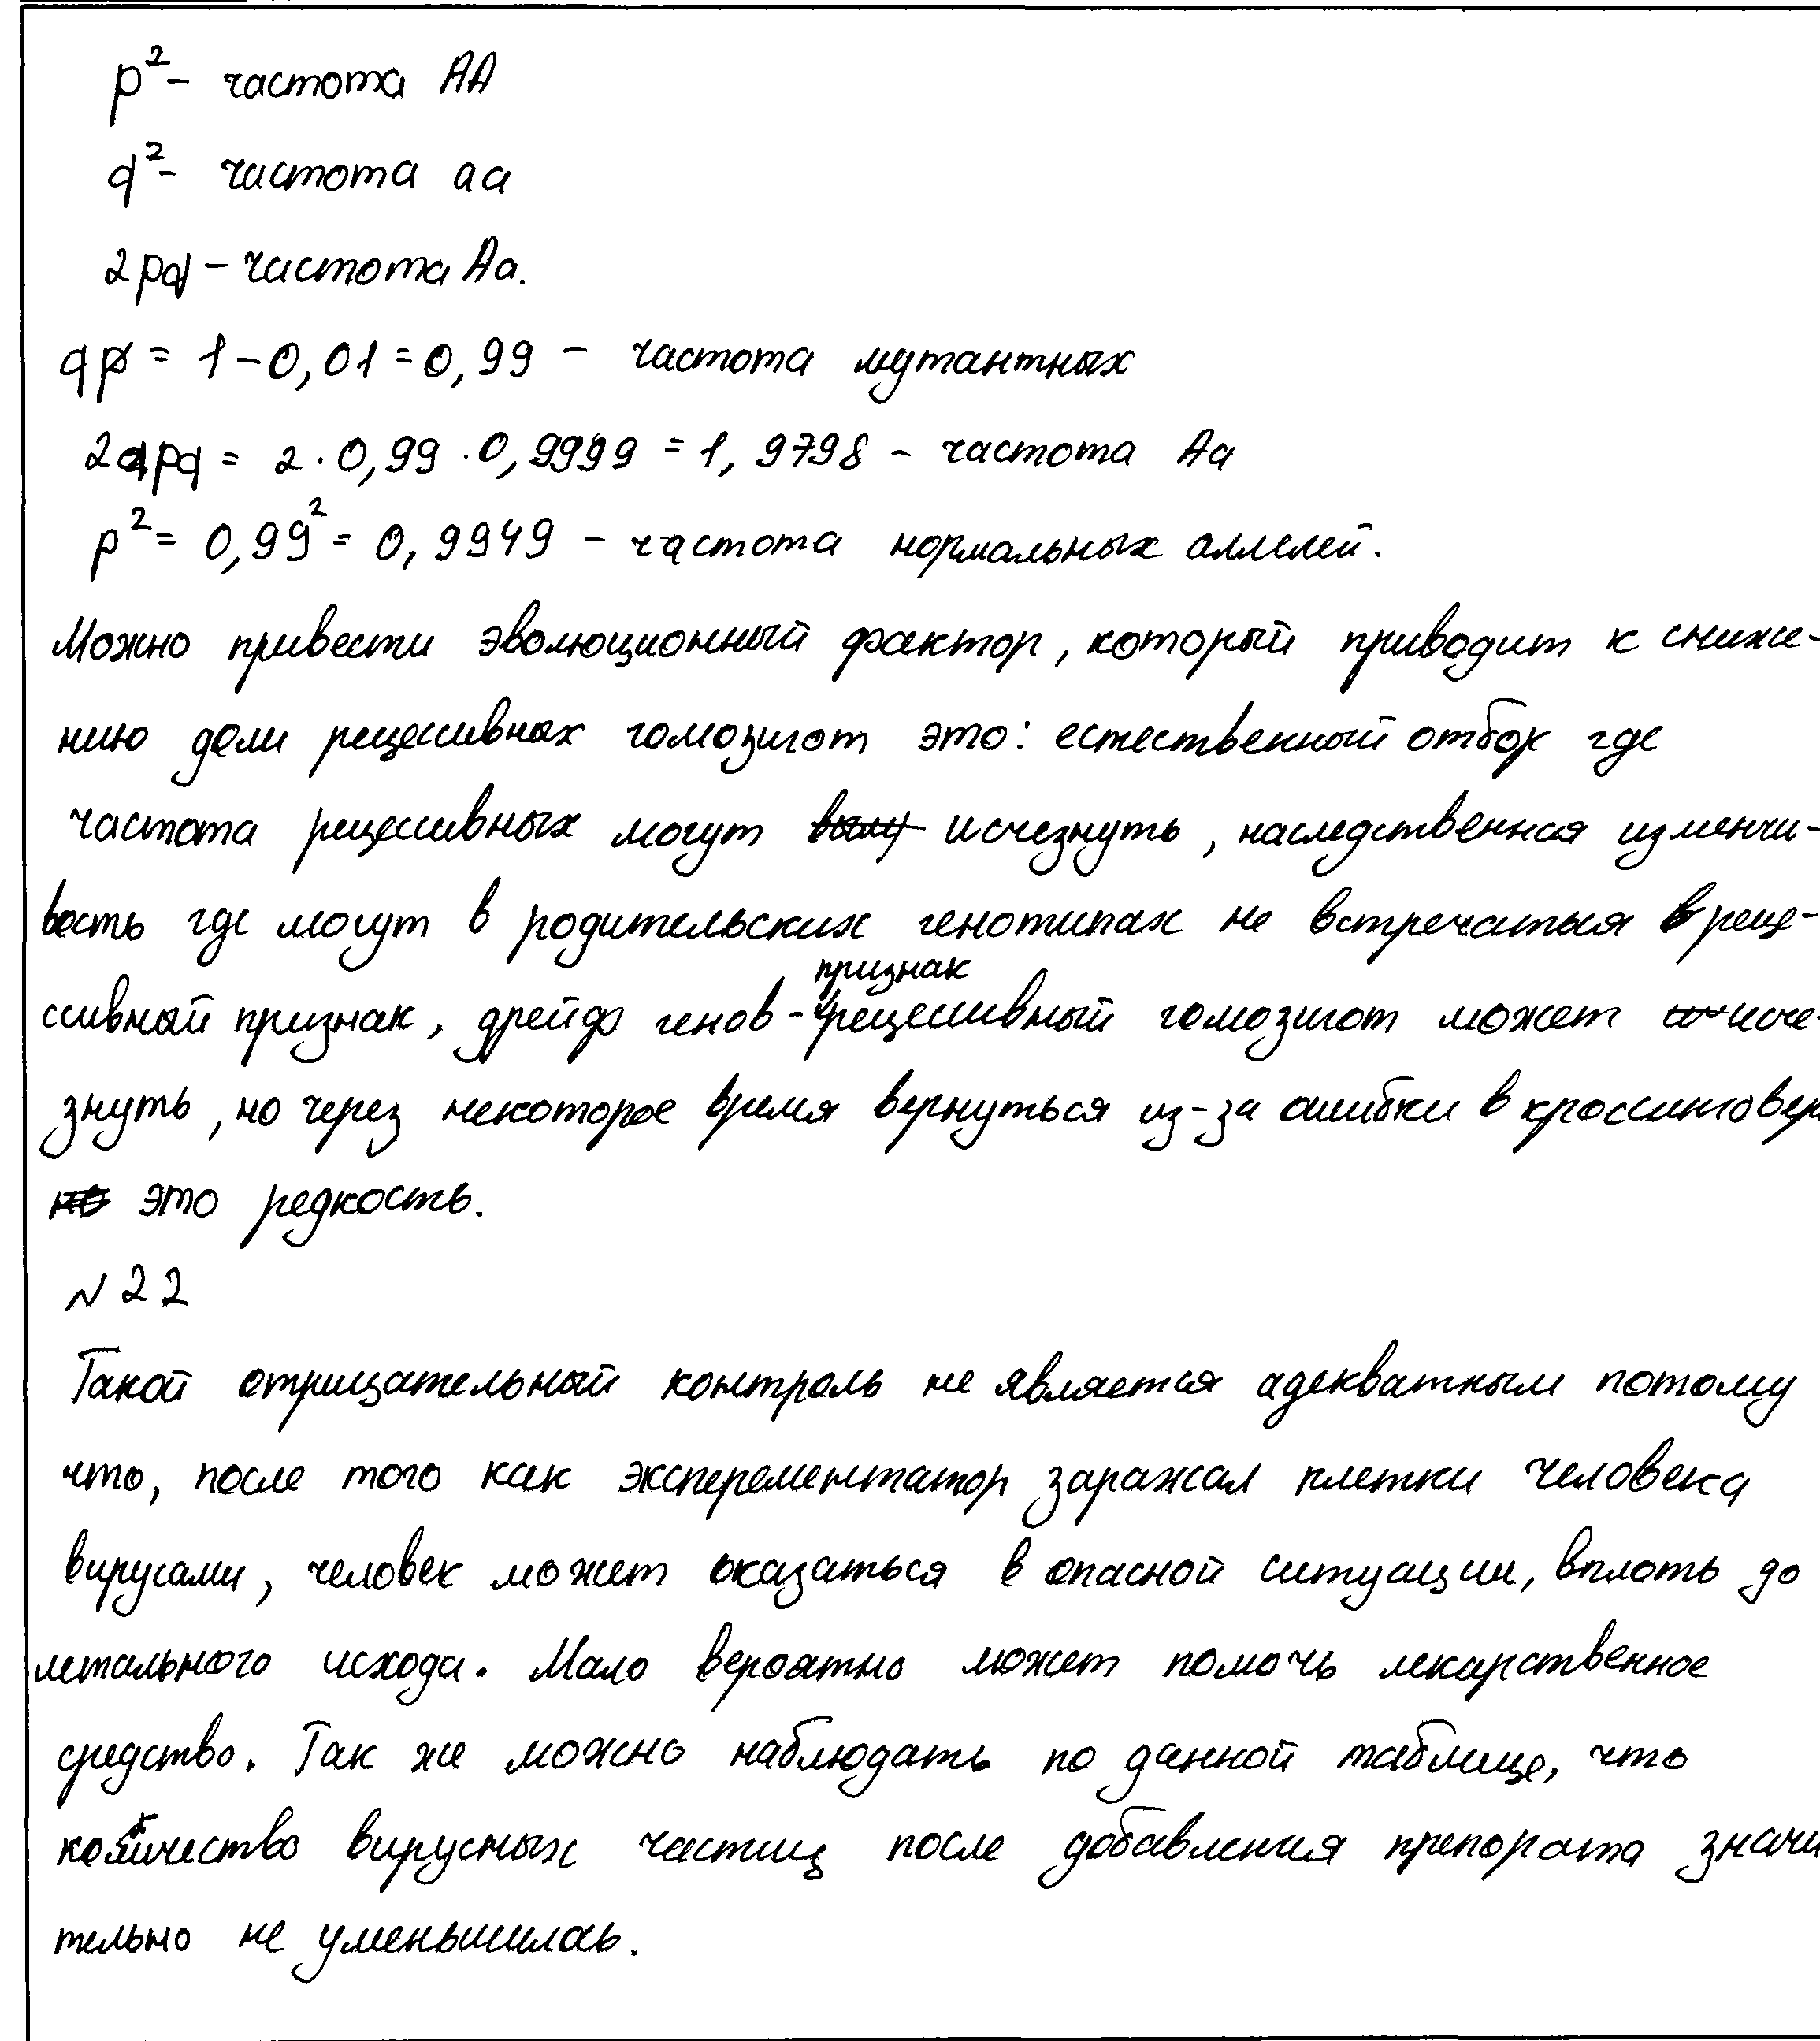 p² - частота АА
q² - частота аа
2pq - частота Аа.
qp = 1 - 0,01 = 0,99 - частота мутантных
2pq = 2 · 0,99 · 0,9999 = 1,9798 - частота Аа
p² = 0,99² = 0,9949 - частота нормальных аллелей.
Можно привести эволюционный фактор, который приводит к сниже-
нию доли рецессивных гомозигот это: естественный отбор где
частота рецессивных могут исчезнуть, наследственная изменчи-
вость где могут в родительских генотипах не встречаться реце-
ссивный признак, дрейф генов - признак рецессивный гомозигот может исче-
знуть, но через некоторое время вернуться из-за ошибки в кроссинговер
это редкость.
№ 22
Такой отрицательный контроль не является адекватным потому
что, после того как эксперементатор заражал клетки человека
вирусами, человек может оказаться в опасной ситуации, вплоть до
летального исхода. Мало вероятно может помочь лекарственное
средство. Так же можно наблюдать по данной таблице, что
количество вирусных частиц после добавления препората значи
тельно не уменьшилась.